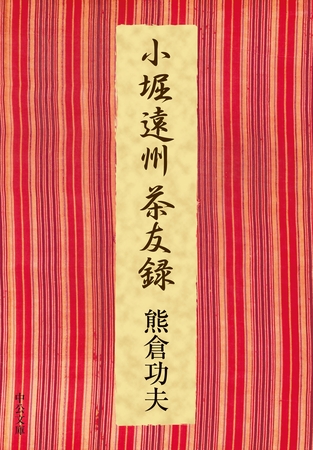 小堀遠州 茶友録
熊倉功夫
中公文庫